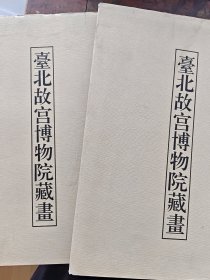 臺北故宮博物院藏畫
臺北故宮博物院藏畫